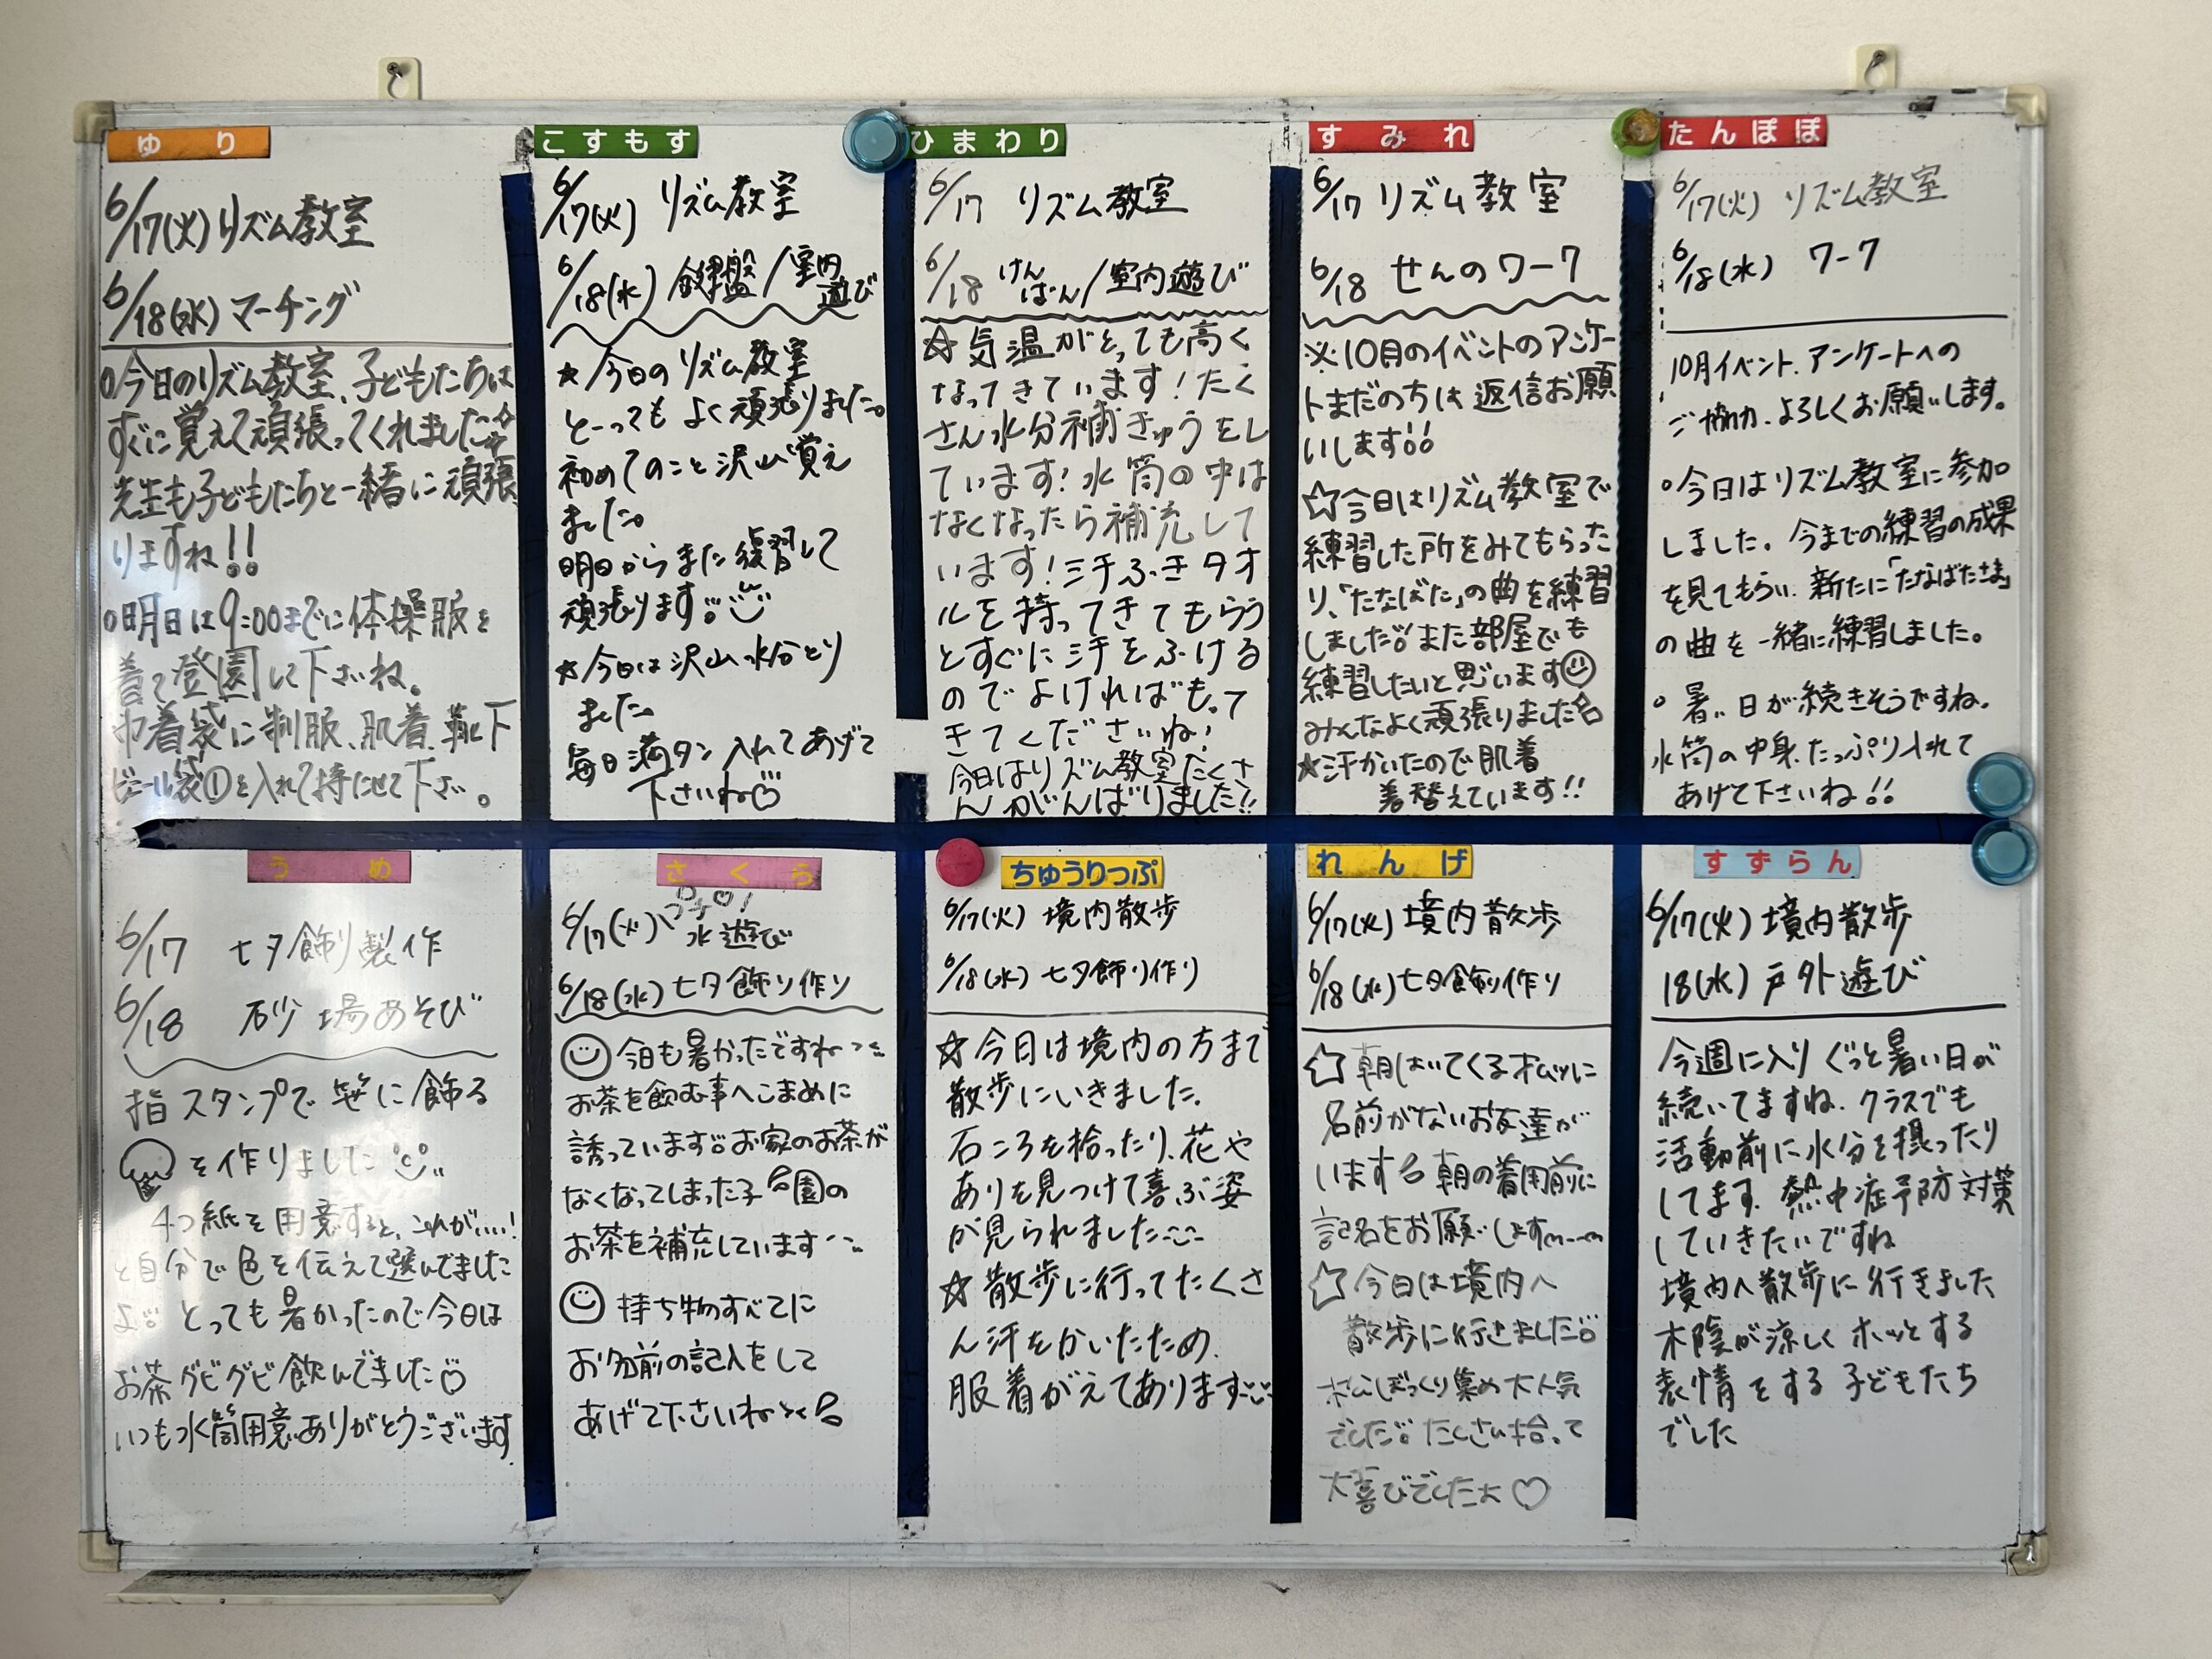 ゆり
6/17(火)リズム教室
6/18(水)マーチング
○今日のリズム教室、子どもたちは
すぐに覚えて頑張ってくれました☆
先生も子どもたちと一緒に頑張
りますね!!
○明日は9:00までに体操服を
着て登園して下さいね。
巾着袋に制服、肌着、靴下
ビニール袋①を入れて持たせて下さい。
こすもす
6/17(火) リズム教室
6/18(水) 鍵盤/室内遊び
★今日のリズム教室
とーってもよく頑張りました。
初めてのこと沢山覚え
ました。
明日からまた練習して
頑張ります。
★今日は沢山水分とり
ました。
毎日満タン入れてあげて
下さいね♡
ひまわり
6/17 リズム教室
6/18 けんばん/室内遊び
☆気温がとっても高く
なってきています!たく
さん水分補きゅうをし
ています!水筒の中は
なくなったら補充して
います!汗ふきタオ
ルを持ってきてもらう
とすぐに汗をふける
のでよければもって
きてくださいね!
今日はリズム教室たくさ
んがんばりました!!
すみれ
6/17 リズム教室
6/18 せんのワーク
※10月のイベントのアンケー
トまだの方は返信お願
いします!!
☆今日はリズム教室で
練習した所をみてもらった
り、「たなばた」の曲を練習
しました!!また部屋でも
練習したいと思います
みんなよく頑張りました
★汗かいたので肌着
着替えています!!
たんぽぽ
6/17(火) リズム教室
6/18(水) ワーク
10月イベント、アンケートへの
ご協力、よろしくお願いします。
○今日はリズム教室に参加
しました。今までの練習の成果
を見てもらい、新たに「たなばたさま」
の曲を一緒に練習しました。
○暑い日が続きそうですね。
水筒の中身、たっぷり入れて
あげて下さいね!!
うめ
6/17 七夕飾り製作
6/18 砂場あそび
指スタンプで笹に飾る
を作りました
4つ紙を用意すると、これがいい!
と自分で色を伝えて選んでました
よ!!とっても暑かったので今日は
お茶グビグビ飲んでました♡
いつも水筒用意ありがとうございます
さくら
6/17(火) 水遊び
6/18(水)七夕飾り作り
今日も暑かったですね
お茶を飲む事へこまめに
誘っています!!お家のお茶が
なくなってしまった子 園の
お茶を補充しています
持ち物すべてに
お名前の記入をして
あげて下さいね
ちゅうりっぷ
6/17(火) 境内散歩
6/18(水) 七夕飾り作り
☆今日は境内の方まで
散歩にいきました。
石ころを拾ったり、花や
ありを見つけて喜ぶ姿
が見られました
☆散歩に行ってたくさ
ん汗をかいたため、
服着がえてあります
れんげ
6/17(火)境内散歩
6/18(水)七夕飾り作り
☆朝はいてくるオムツに
名前がないお友達が
います 朝の着用前に
記名をお願いします
☆今日は境内へ
散歩に行きました!!
松ぼっくり集め大人気
でした!!たくさん拾って
大喜びでしたよ♡
すずらん
6/17(火)境内散歩
18(水)戸外遊び
今週に入りぐっと暑い日が
続いてますね。クラスでも
活動前に水分を摂ったり
してます。熱中症予防対策
していきたいですね
境内へ散歩に行きました
木陰が涼しくホッとする
表情をする子どもたち
でした